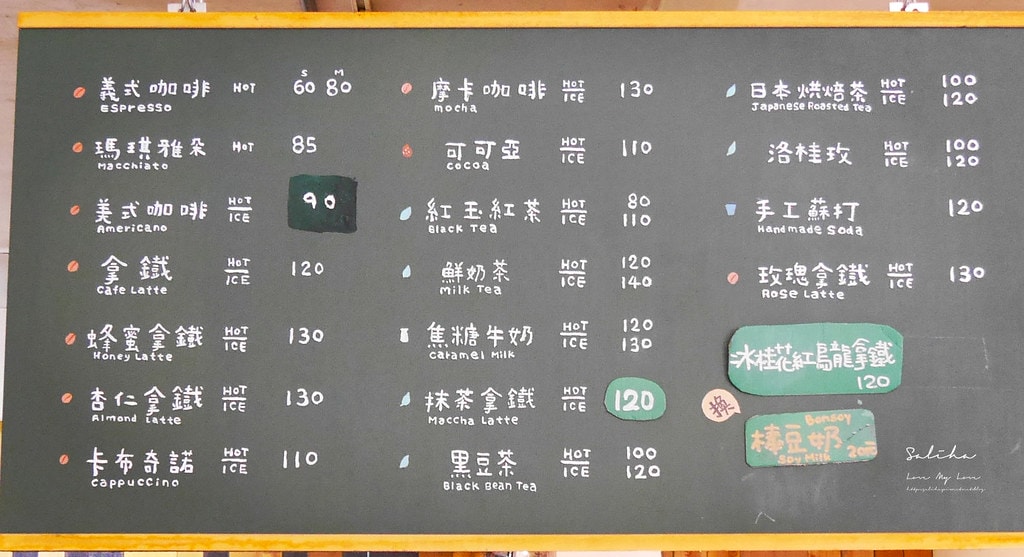 S M
義式咖啡 HOT 60 80
Espresso
瑪琪雅朵 HOT 85
Macchiato
美式咖啡 HOT ICE 90
Americano
拿鐵 HOT ICE 120
Cafe Latte
蜂蜜拿鐵 HOT ICE 130
Honey Latte
杏仁拿鐵 HOT ICE 130
Almond Latte
卡布奇諾 HOT ICE 110
Cappuccino
摩卡咖啡 HOT ICE 130
mocha
可可亞 HOT ICE 110
cocoa
紅玉紅茶 HOT ICE 80 110
Black Tea
鮮奶茶 HOT ICE 120 140
Milk Tea
焦糖牛奶 HOT ICE 120 130
Caramel Milk
抹茶拿鐵 HOT ICE 120
Maccha Latte
黑豆茶 HOT ICE 100 120
Black Bean Tea
日本烘焙茶 HOT ICE 100 120
Japanese Roasted Tea
洛桂玫 HOT ICE 100 120
手工蘇打 120
Handmade Soda
玫瑰拿鐵 HOT ICE 130
Rose Latte
冰桂花紅烏龍拿鐵
120
換
Bonsoy
豆奶
Soy Milk 20元
Saliha
Love My Love